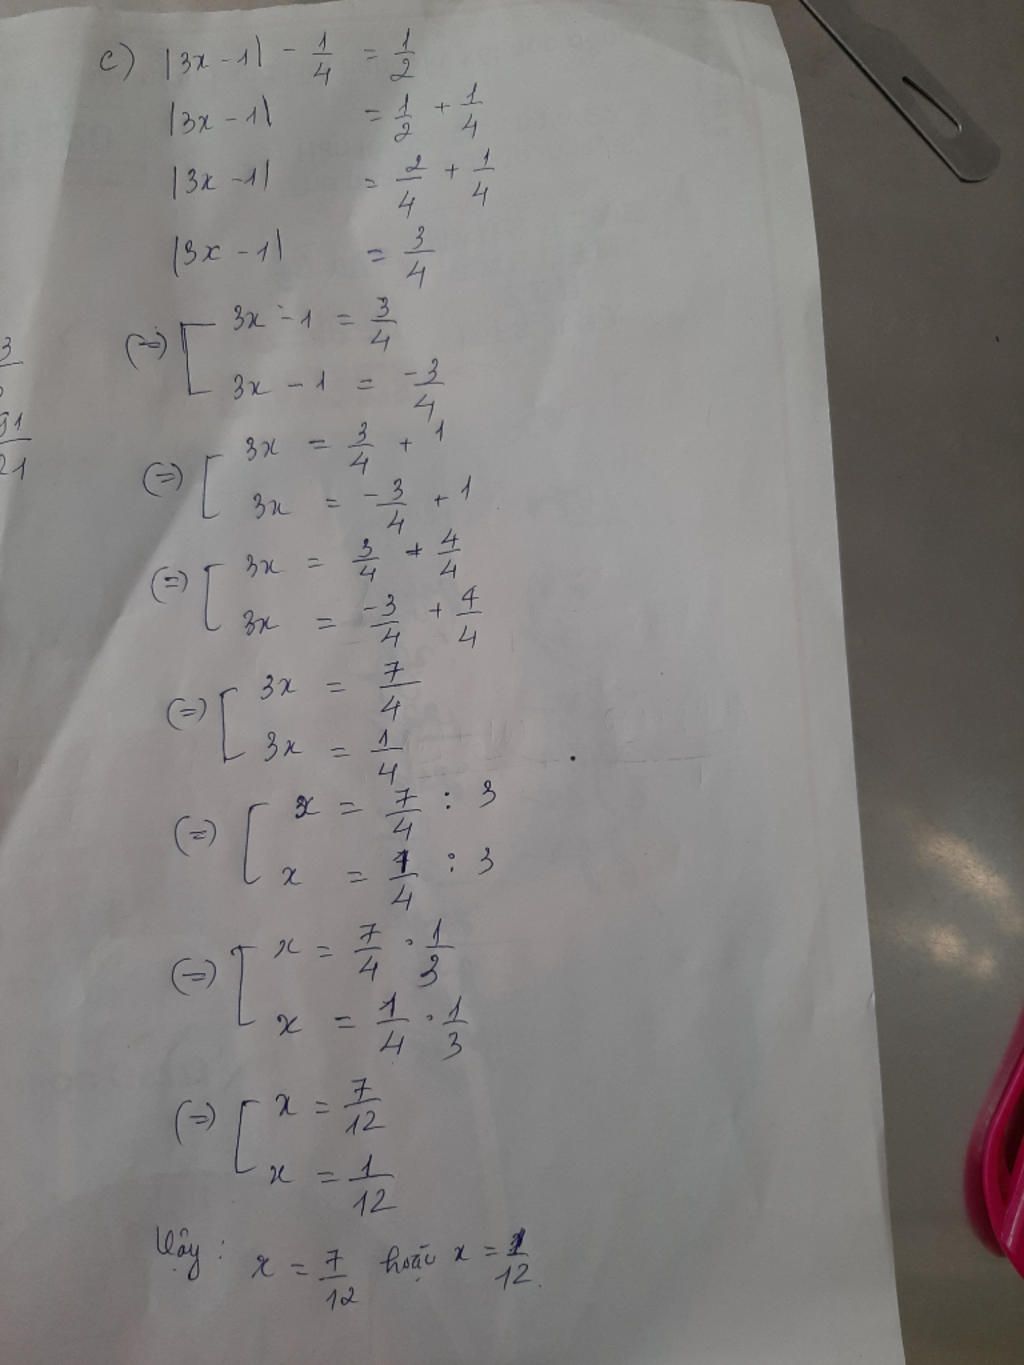 c) |3x - 1| - 1/4 = 1/2
|3x - 1| = 1/2 + 1/4
|3x - 1| = 2/4 + 1/4
|3x - 1| = 3/4
(=) [ 3x - 1 = 3/4
3x - 1 = -3/4
(=) [ 3x = 3/4 + 1
3x = -3/4 + 1
(=) [ 3x = 3/4 + 4/4
3x = -3/4 + 4/4
(=) [ 3x = 7/4
3x = 1/4
(=) [ x = 7/4 : 3
x = 1/4 : 3
(=) [ x = 7/4 . 1/3
x = 1/4 . 1/3
(=) [ x = 7/12
x = 1/12
Vậy : x = 7/12 hoặc x = 1/12.